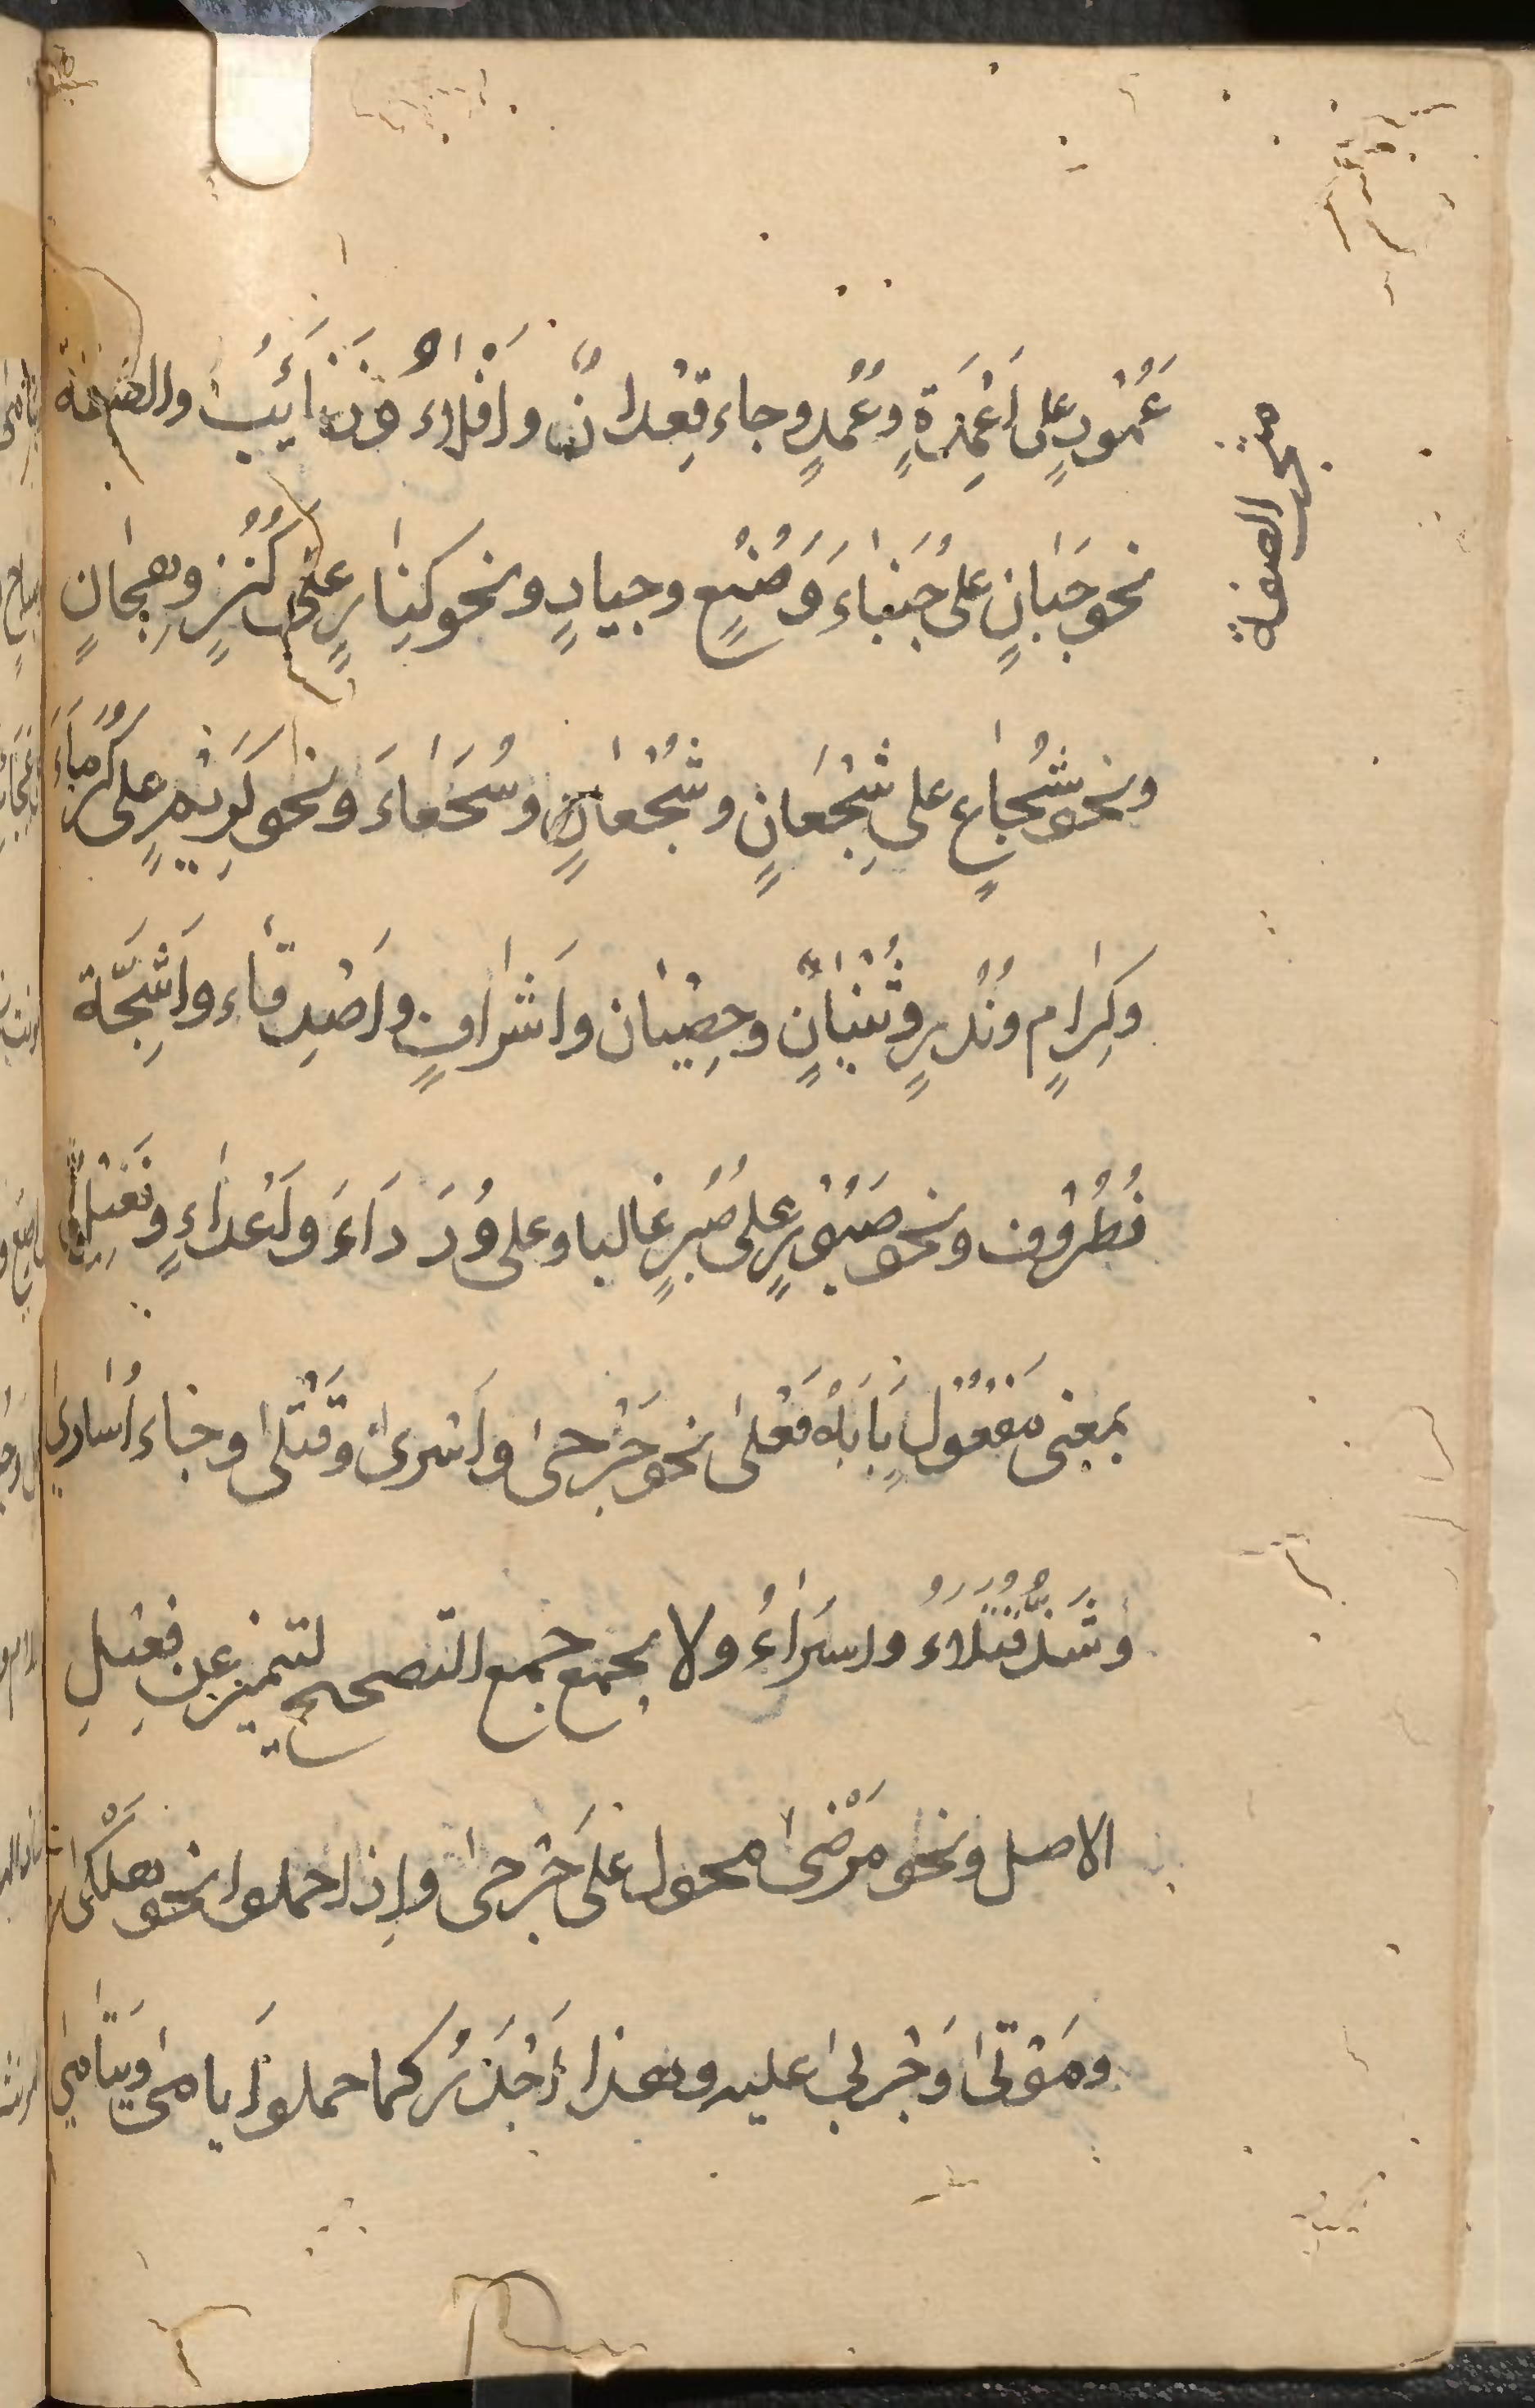 عَمُوْدٍ على اَعْمِدَةٍ وَعُمُدٍ وجاء قِعْدانٌ وافْلاءٌ وَذَنَائِبُ والصفة
نحو جَبَانٍ على جُبَنَاءَ وَصُنُعٍ وجِيادٍ ونحو كِنازٍ على كُنُزٍ وهِجَانٍ
ونحو شُجَاعٍ على شِجْعَانٍ وشُجْعَانٍ وشُجَعَاءَ ونحو كَرِيْمٍ على كُرَمَآءَ
وكِرَامٍ ونُذُرٍ وثُنْيَانٍ وخِصْيَان واَشْرَافٍ واَصْدِقاء واَشِحَّة
وظُرُوْف ونحو صَبُوْرٍ على صُبُرٍ غالبا وعلى وُدَدَاءَ واَعْدَاءٍ وفَعِيْلٌ
بمعنى مَفْعُوْلٍ بَابُهُ فَعْلىٰ نحو جَرْحىٰ واَسْرىٰ وقَتْلىٰ وجاء اُسَارىٰ
وشَذَّ قُتَلَاءُ واسَرَاءُ ولا يجمع جمع التصحيح لتميز عن فَعِيْلِ
الاصل ونحو مَرْضىٰ محمول على جَرْحىٰ وإذا حملوا نحو هَلْكىٰ
ومَوْتىٰ وَجَرْبىٰ عليه وهذا اَجْدَرُ كما حملوا اَيَامىٰ ويَتَامىٰ
الصفة